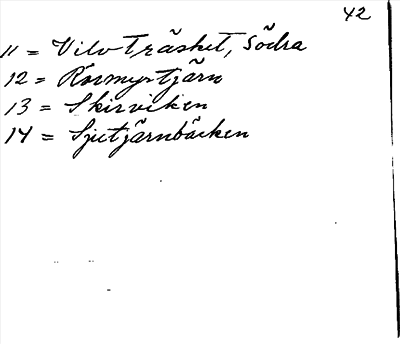 42
11 = Vilvträsket, Södra
12 = Rösmyrtjärn
13 = Skirviken
14 = Sjutjärnbäcken